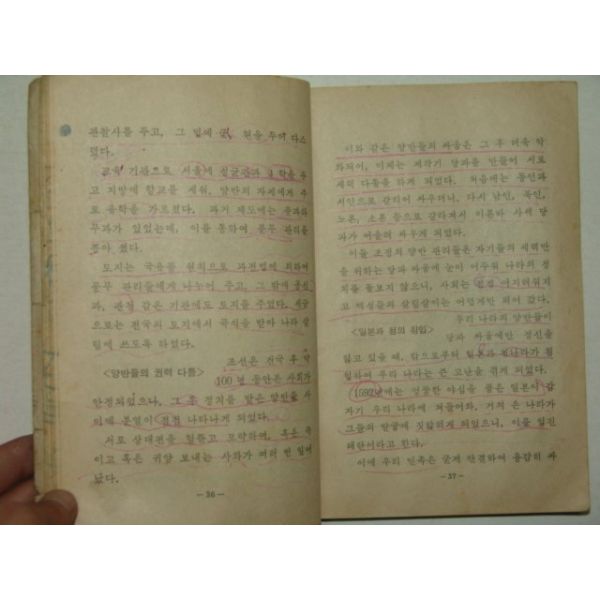 관찰사를 두고, 그 밑에 군, 현을 두어 다스
렸다.
교육 기관으로 서울에 성균관과 4학을 두
고 지방에 향교를 세워, 양반의 자제에게 주
로 유학을 가르쳤다. 과거 제도에는 문과와
무과가 있었는데, 이를 통하여 문무 관리를
뽑아 썼다.
토지는 국유를 원칙으로 과전법에 의하여
문무 관리들에게 나누어 주고, 그 밖에 궁실
과, 관청 같은 기관에도 토지를 주었다. 세금
으로는 전국의 토지에서 곡식을 받아 나라 살
림에 쓰도록 하였다.
<양반들의 권력 다툼>
조선은 건국 후 약
100년 동안은 사회가
안정되었으나, 그 후 정치를 맡은 양반들 사
이에 분열이 점점 나타나게 되었다.
서로 상대편을 헐뜯고 모략하며, 혹은 죽
이고 혹은 귀양 보내는 사화가 여러 번 일어
났다.
— 36 —
이와 같은 양반들의 싸움은 그 후 더욱 악
화되어, 이제는 제각기 당파를 만들어 서로
세력 다툼을 하게 되었다. 처음에는 동인과
서인으로 갈리어 싸우더니, 다시 남인, 북인,
노론, 소론 등으로 갈라져서 이른바 사색 당
파가 어울려 싸우게 되었다.
이들 조정의 양반 관리들은 자기들의 세력만
을 위하는 당파 싸움에 눈이 어두워 나라의 정
치를 돌보지 않으니, 사회는 점점 어지러워지
고 백성들의 살림살이는 어렵게만 되어 갔다.
<일본과 청의 침입>
우리 나라의 양반들이
당파 싸움에만 정신을
잃고 있을 때, 밖으로부터 일본과 청나라가 침
입하여 우리 나라는 큰 고난을 겪게 되었다.
1592년에는 엉뚱한 야심을 품은 일본이 갑
자기 우리 나라에 쳐들어와, 거의 온 나라가
그들의 발굽에 짓밟히게 되었으니, 이를 임진
왜란이라고 한다.
이에 우리 민족은 굳게 단결하여 용감히 싸
— 37 —